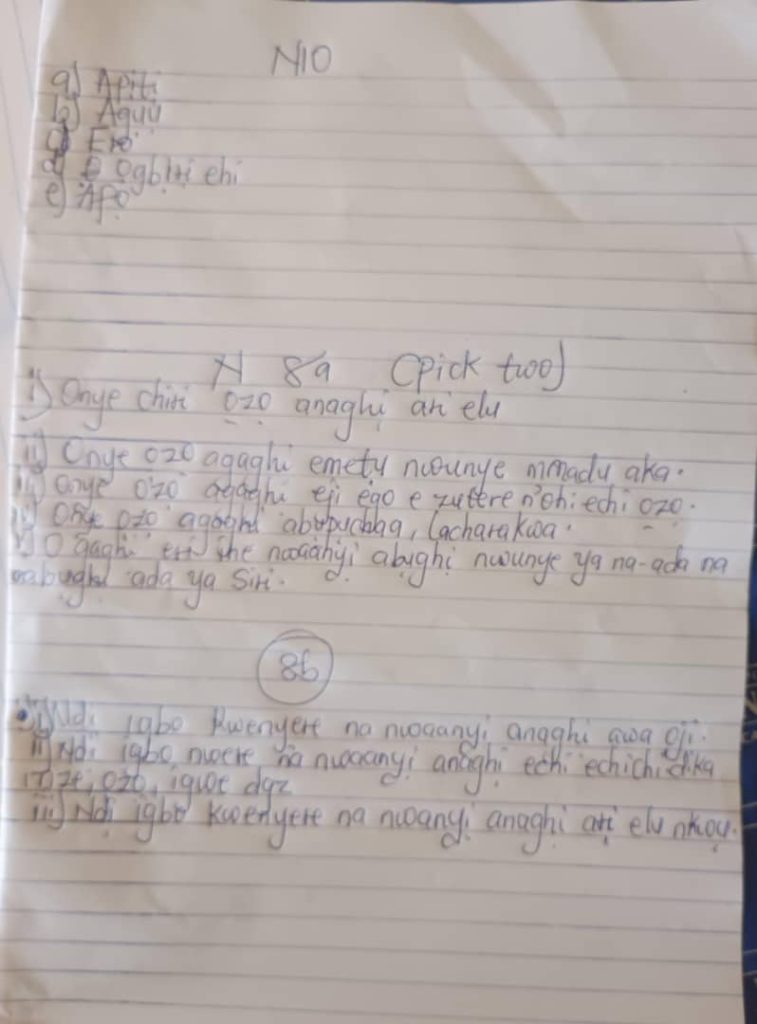 N10
a) Apiti
b) Aguu
c) Ero
d) Ogbiri ehi
e) Apo
N 8a (pick two)
i) Onye chiri ọzọ anaghị ari elu
ii) Onye ozo agaghi emetụ nwunye mmadụ aka.
iii) onye ozo agaghi eji ego e zutere n'ohi echi ọzọ.
iv) Onye ozo agaghi abọpuchha, lacharakwa.
v) O gaghi eri ihe nwaanyị abụghị nwunye ya na-ada na
nabughi ada ya Siri.
8b
i) Ndi igbo kwenyere na nwaanyi anaghi awa ọji.
ii) Ndi igbo nwere na nwaanyị anaghị echi echichi dika
ịze, ozo, igwe dgz
iii) Ndi igbo kwenyere na nwanyị anaghi arị elu nkwụ.